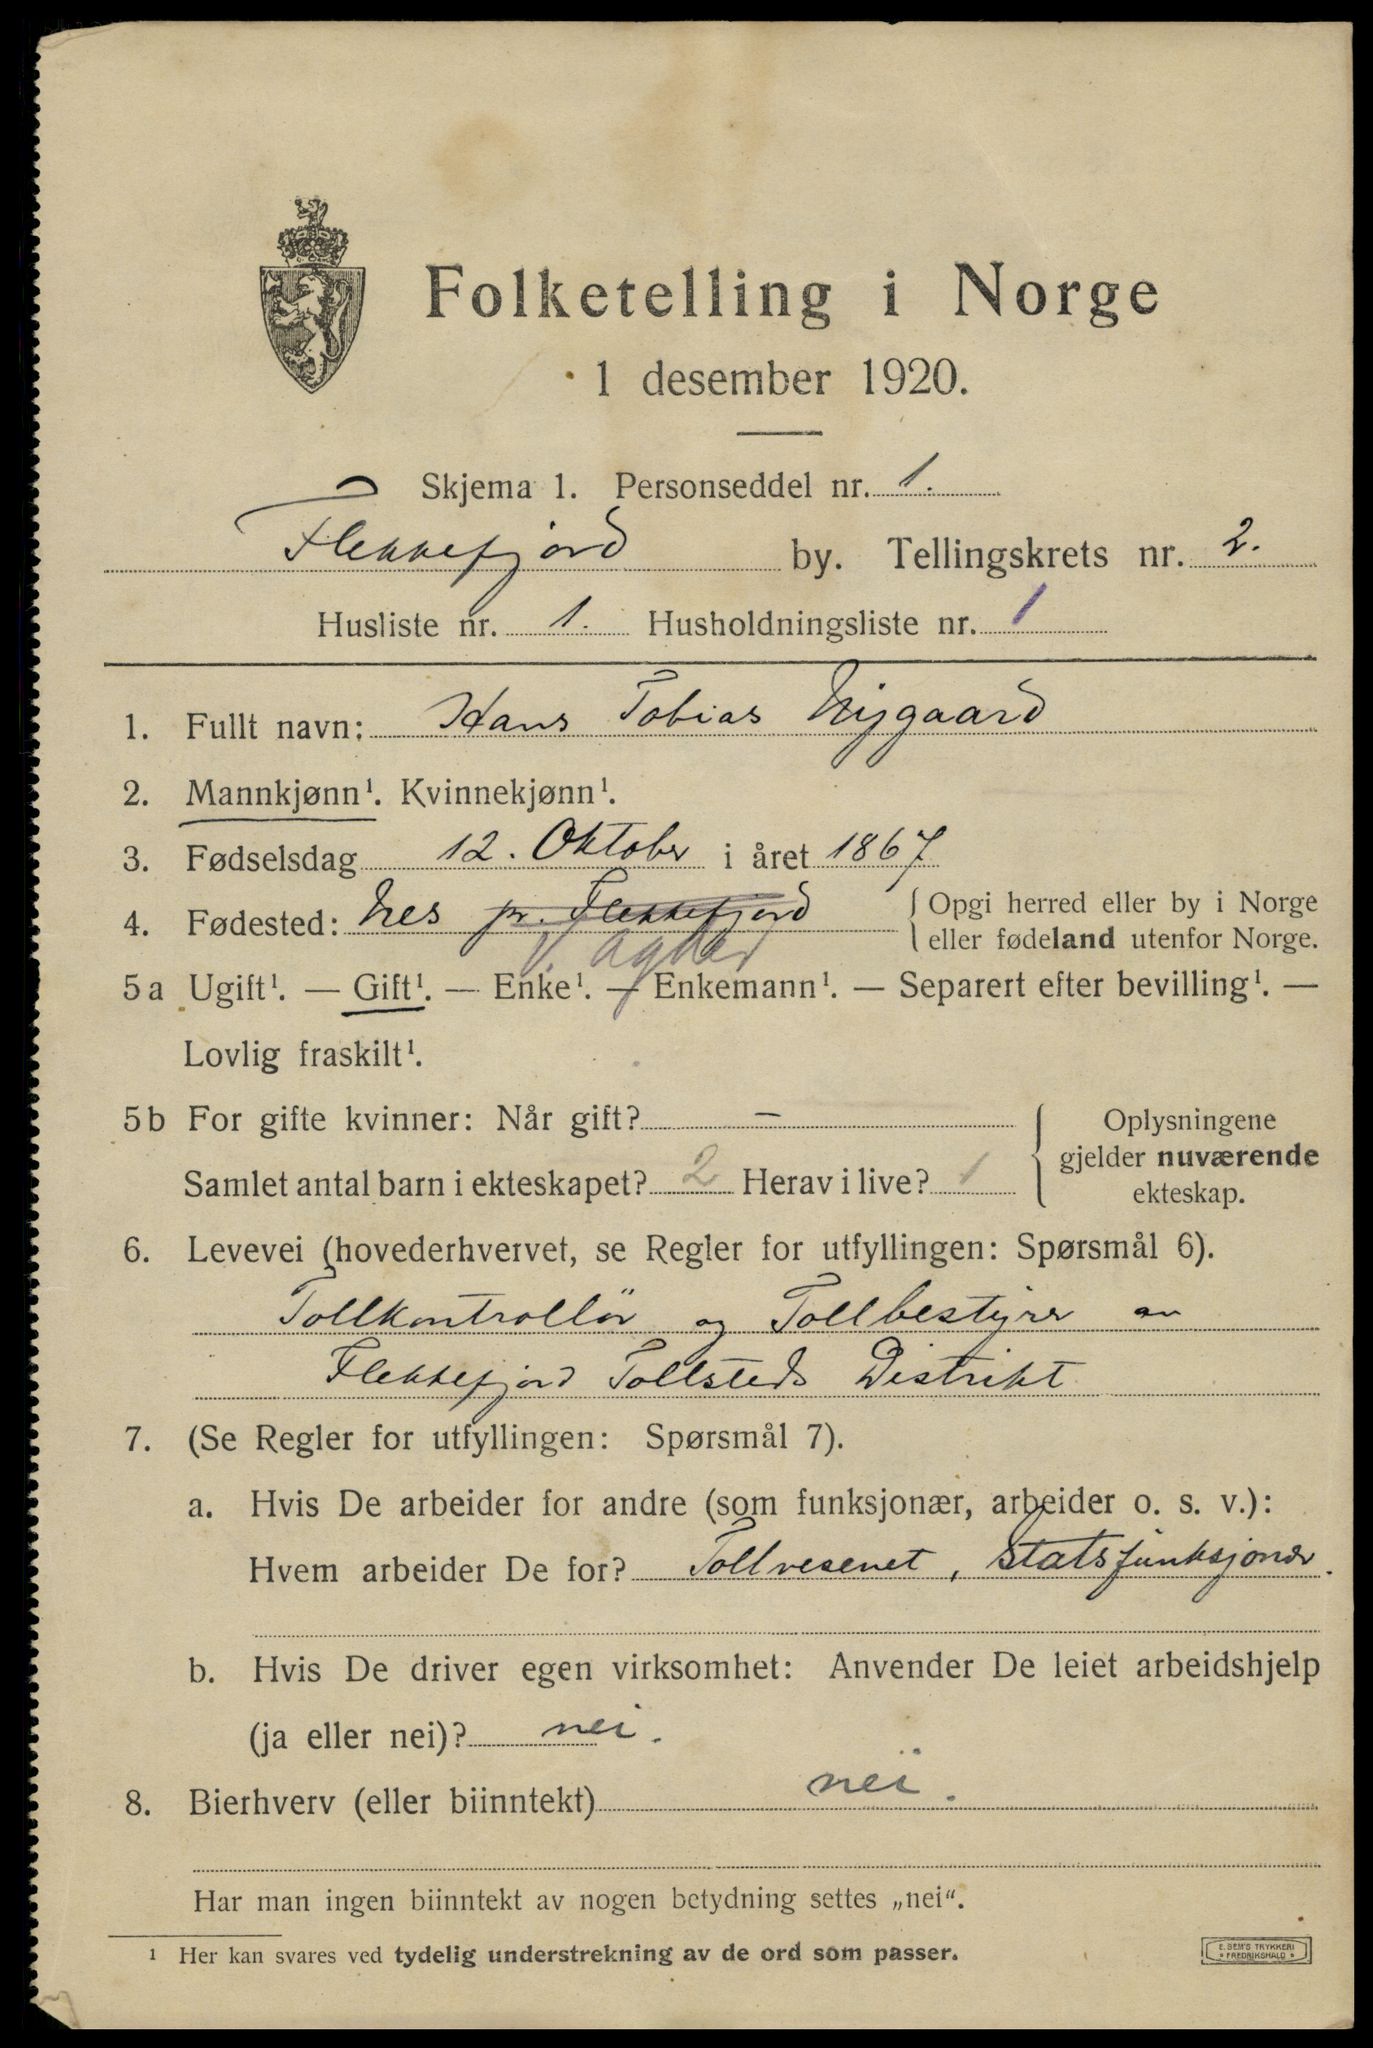 Folketelling i Norge
1 desember 1920.
Skjema 1. Personseddel nr. 1.
Flekkefjord by. Tellingskrets nr. 2.
Husliste nr. 1. Husholdningsliste nr. 1
1. Fullt navn: Hans Tobias Nygaard
2. Mannkjønn¹. Kvinnekjønn¹.
3. Fødselsdag 12. Oktober i året 1867
4. Fødested: Nes pr. Flekkefjord { Opgi herred eller by i Norge
{ eller fødeland utenfor Norge.
V. Agder
5 a Ugift¹. — Gift¹. — Enke¹. — Enkemann¹. — Separert efter bevilling¹. —
Lovlig fraskilt¹.
5 b For gifte kvinner: Når gift? —
Samlet antal barn i ekteskapet? 2 Herav i live? 1
Oplysningene
gjelder nuværende
ekteskap.
6. Levevei (hovederhvervet, se Regler for utfyllingen: Spørsmål 6).
Tollkontrollör og Tollbestyrer av
Flekkefjord Tollsteds Distrikt
7. (Se Regler for utfyllingen: Spørsmål 7).
a. Hvis De arbeider for andre (som funksjonær, arbeider o. s. v.):
Hvem arbeider De for? Tollvesenet, Statsfunksjonær.
b. Hvis De driver egen virksomhet: Anvender De leiet arbeidshjelp
(ja eller nei)? nei.
8. Bierhverv (eller biinntekt) nei.
Har man ingen biinntekt av nogen betydning settes „nei“.
¹ Her kan svares ved tydelig understrekning av de ord som passer.
E. SEM'S TRYKKERI
FREDRIKSHALD